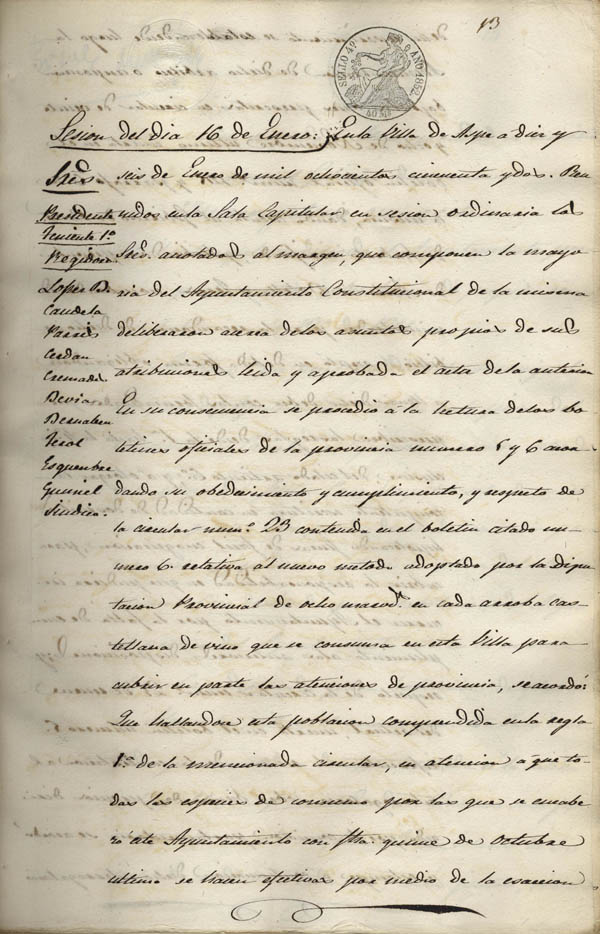 13
SELLO 4º AÑO 1852.
40 MS
Sesion del dia 16 de Enero: En la Villa de Aspe a diez y
Sres
Presidente
Teniente 1º
Regidores
Lopez B.
Caudela
Pavia
Cerdan
Cremades
Devia
Bernabeu
Terol
Esquembre
Gumiel
Sindico
seis de Enero de mil ochocientos cincuenta y dos. Reu
nidos en la Sala Capitular en sesion ordinaria los
Sres. anotados al margen, que componen la mayo
ria del Ayuntamiento Constitucional de la misma
deliberaron acerca delos asuntos propios de sus
atribuciones leida y aprobada el acta de la anterior
En su consecuencia se procedio á la lectura delos bo
letines oficiales de la provincia numero 5 y 6 acor
dando su obedecimiento y cumplimiento, y respeto de
la circular numº 23 contenida en el boletin citado nu
mero 6. relativa al nuevo metodo adoptado por la Dipu
tacion Provincial de ocho maravs. en cada arroba cas
tellana de vino que se consuma en esta Villa para
cubrir en parte las atenciones de provincia, se acordó:
Que hallandose esta poblacion comprendida en la regla
1ª de la mencionada circular, en atencion a que to
das las especies de consumo por las que se encabe
zó este Ayuntamiento con fha. quince de Octubre
ultimo se hacen efectivas por medio de la esaccion